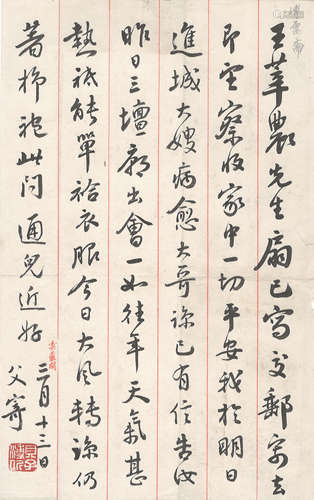 王莘農先生扇已寫交郵寄去
即望察收家中一切平安我於明日
進城大嫂病愈大哥諒已有信告汝
昨日三壇廟出會一如往年天氣甚
熱祇能單袷衣服今日大風轉諒仍
著棉袍此問通兒近好
父寄
二月十三日